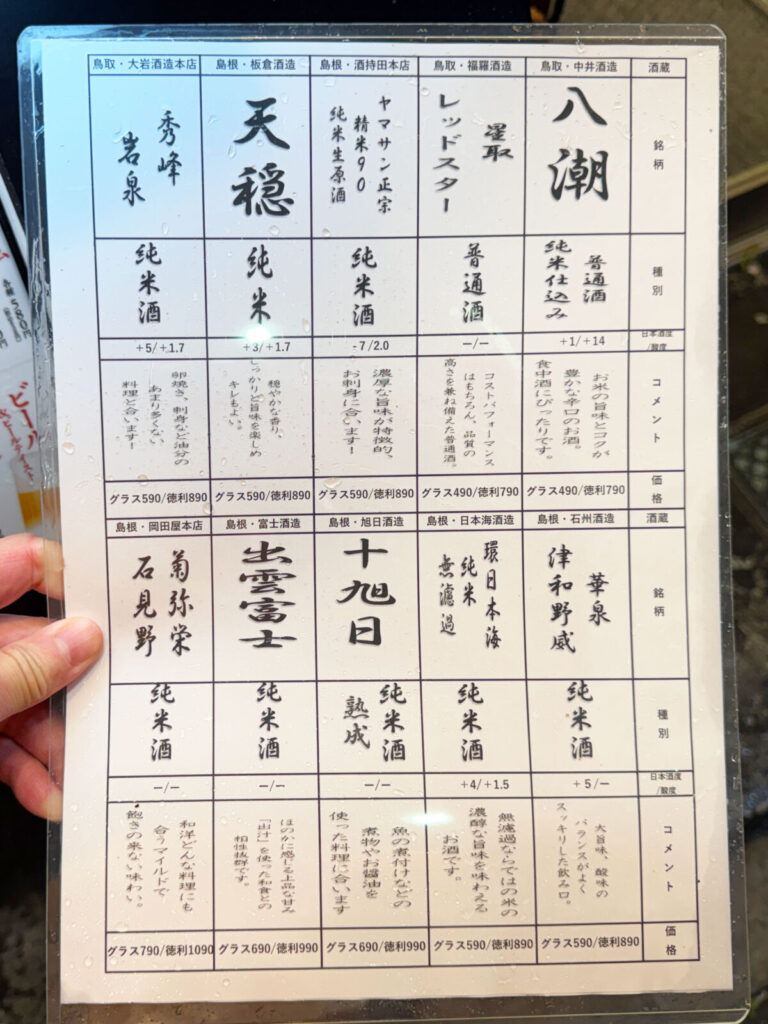 酒蔵
銘柄
種別
日本酒度/酸度
コメント
価格
鳥取・中井酒造
八潮
普通酒
純米仕込み
+1/+14
お米の旨味とコクが
豊かな辛口のお酒。
食中酒にぴったりです。
グラス490/徳利790
鳥取・福羅酒造
星取
レッドスター
普通酒
ー/ー
コストパフォーマンス
はもちろん、品質の
高さを兼ね備えた普通酒。
グラス490/徳利790
島根・酒持田本店
ヤマサン正宗
精米90
純米生原酒
純米酒
-7/2.0
濃厚な旨味が特徴的、
お刺身に合います!
グラス590/徳利890
島根・板倉酒造
天穏
純米
+3/+1.7
穏やかな香り、
しっかりと旨味を楽しめ
キレもよい。
グラス590/徳利890
鳥取・大岩酒造本店
秀峰
岩泉
純米酒
+5/+1.7
卵焼き、刺身など油分の
あまり多くない
料理と合います!
グラス590/徳利890
酒蔵
銘柄
種別
日本酒度/酸度
コメント
価格
島根・石州酒造
華泉
津和野威
純米酒
+5/ー
大旨味、酸味の
バランスがよく
スッキリした飲み口。
グラス590/徳利890
島根・日本海酒造
環日本海
純米
無濾過
純米酒
+4/+1.5
無濾過ならではの米の
濃醇な旨味を味わえる
お酒です。
グラス590/徳利890
島根・旭日酒造
十旭日
純米酒
熟成
ー/ー
魚の煮付けなどの
煮物やお醬油を
使った料理に合います
グラス690/徳利990
島根・富士酒造
出雲富士
純米酒
ー/ー
ほのかに感じる上品な甘み
「出汁」を使った和食との
相性抜群です。
グラス690/徳利990
島根・岡田屋本店
菊弥栄
石見野
純米酒
ー/ー
和洋どんな料理にも
合うマイルドで
飽きの来ない味わい。
グラス790/徳利1090
各種580円
ビール